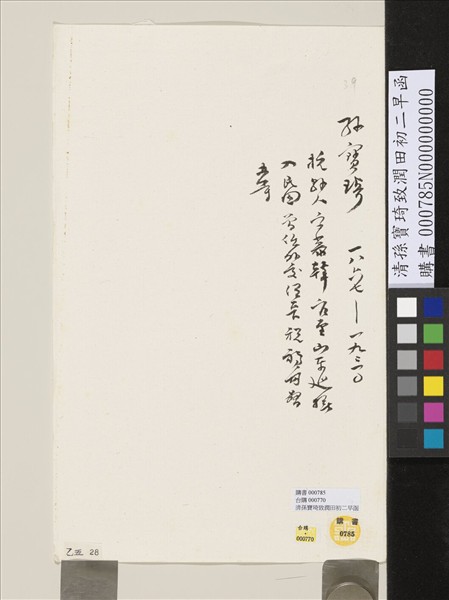 孫寶琦 一八六七—一九三一
杭縣人字慕韓官至山東巡撫
入民國曾任外交
清孫寶琦致潤田初二早函
購書 000785N000000000
購書 000785
台購 000770
清孫寶琦致潤田初二早函
購書
0785
台購
000770
乙亚 28